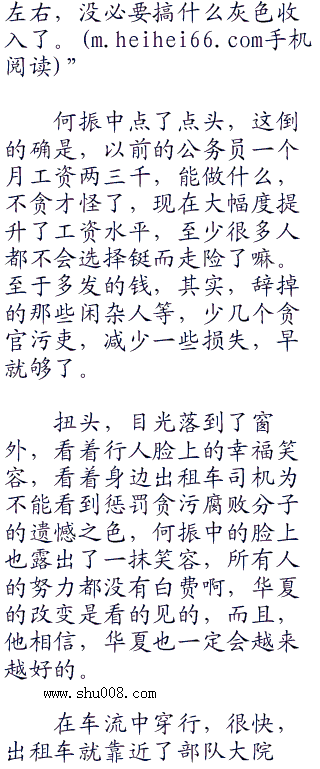 左右，没必要搞什么灰色收
入了。(m.heihei66.com手机
阅读)”
何振中点了点头，这倒
的确是，以前的公务员一个
月工资两三千，能做什么，
不贪才怪了，现在大幅度提
升了工资水平，至少很多人
都不会选择铤而走险了嘛。
至于多发的钱，其实，辞掉
的那些闲杂人等，少几个贪
官污吏，减少一些损失，早
就够了。
扭头，目光落到了窗
外，看着行人脸上的幸福笑
容，看着身边出租车司机为
不能看到惩罚贪污腐败分子
的遗憾之色，何振中的脸上
也露出了一抹笑容，所有人
的努力都没有白费啊，华夏
的改变是看的见的，而且，
他相信，华夏也一定会越来
越好的。
www.shu008.com
在车流中穿行，很快，
出租车就靠近了部队大院